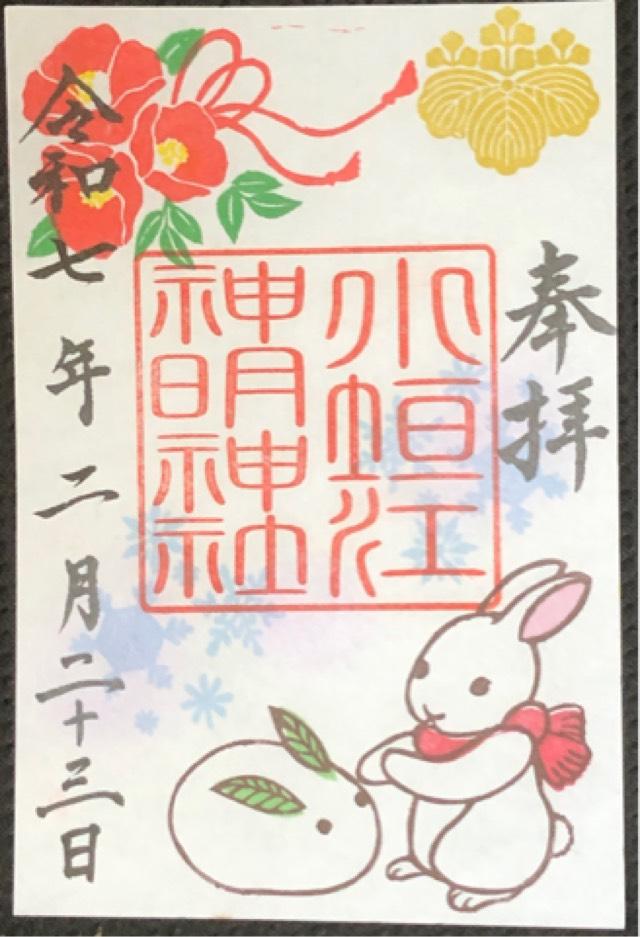 奉拝
小垣江
神明神社
令和七年二月二十三日